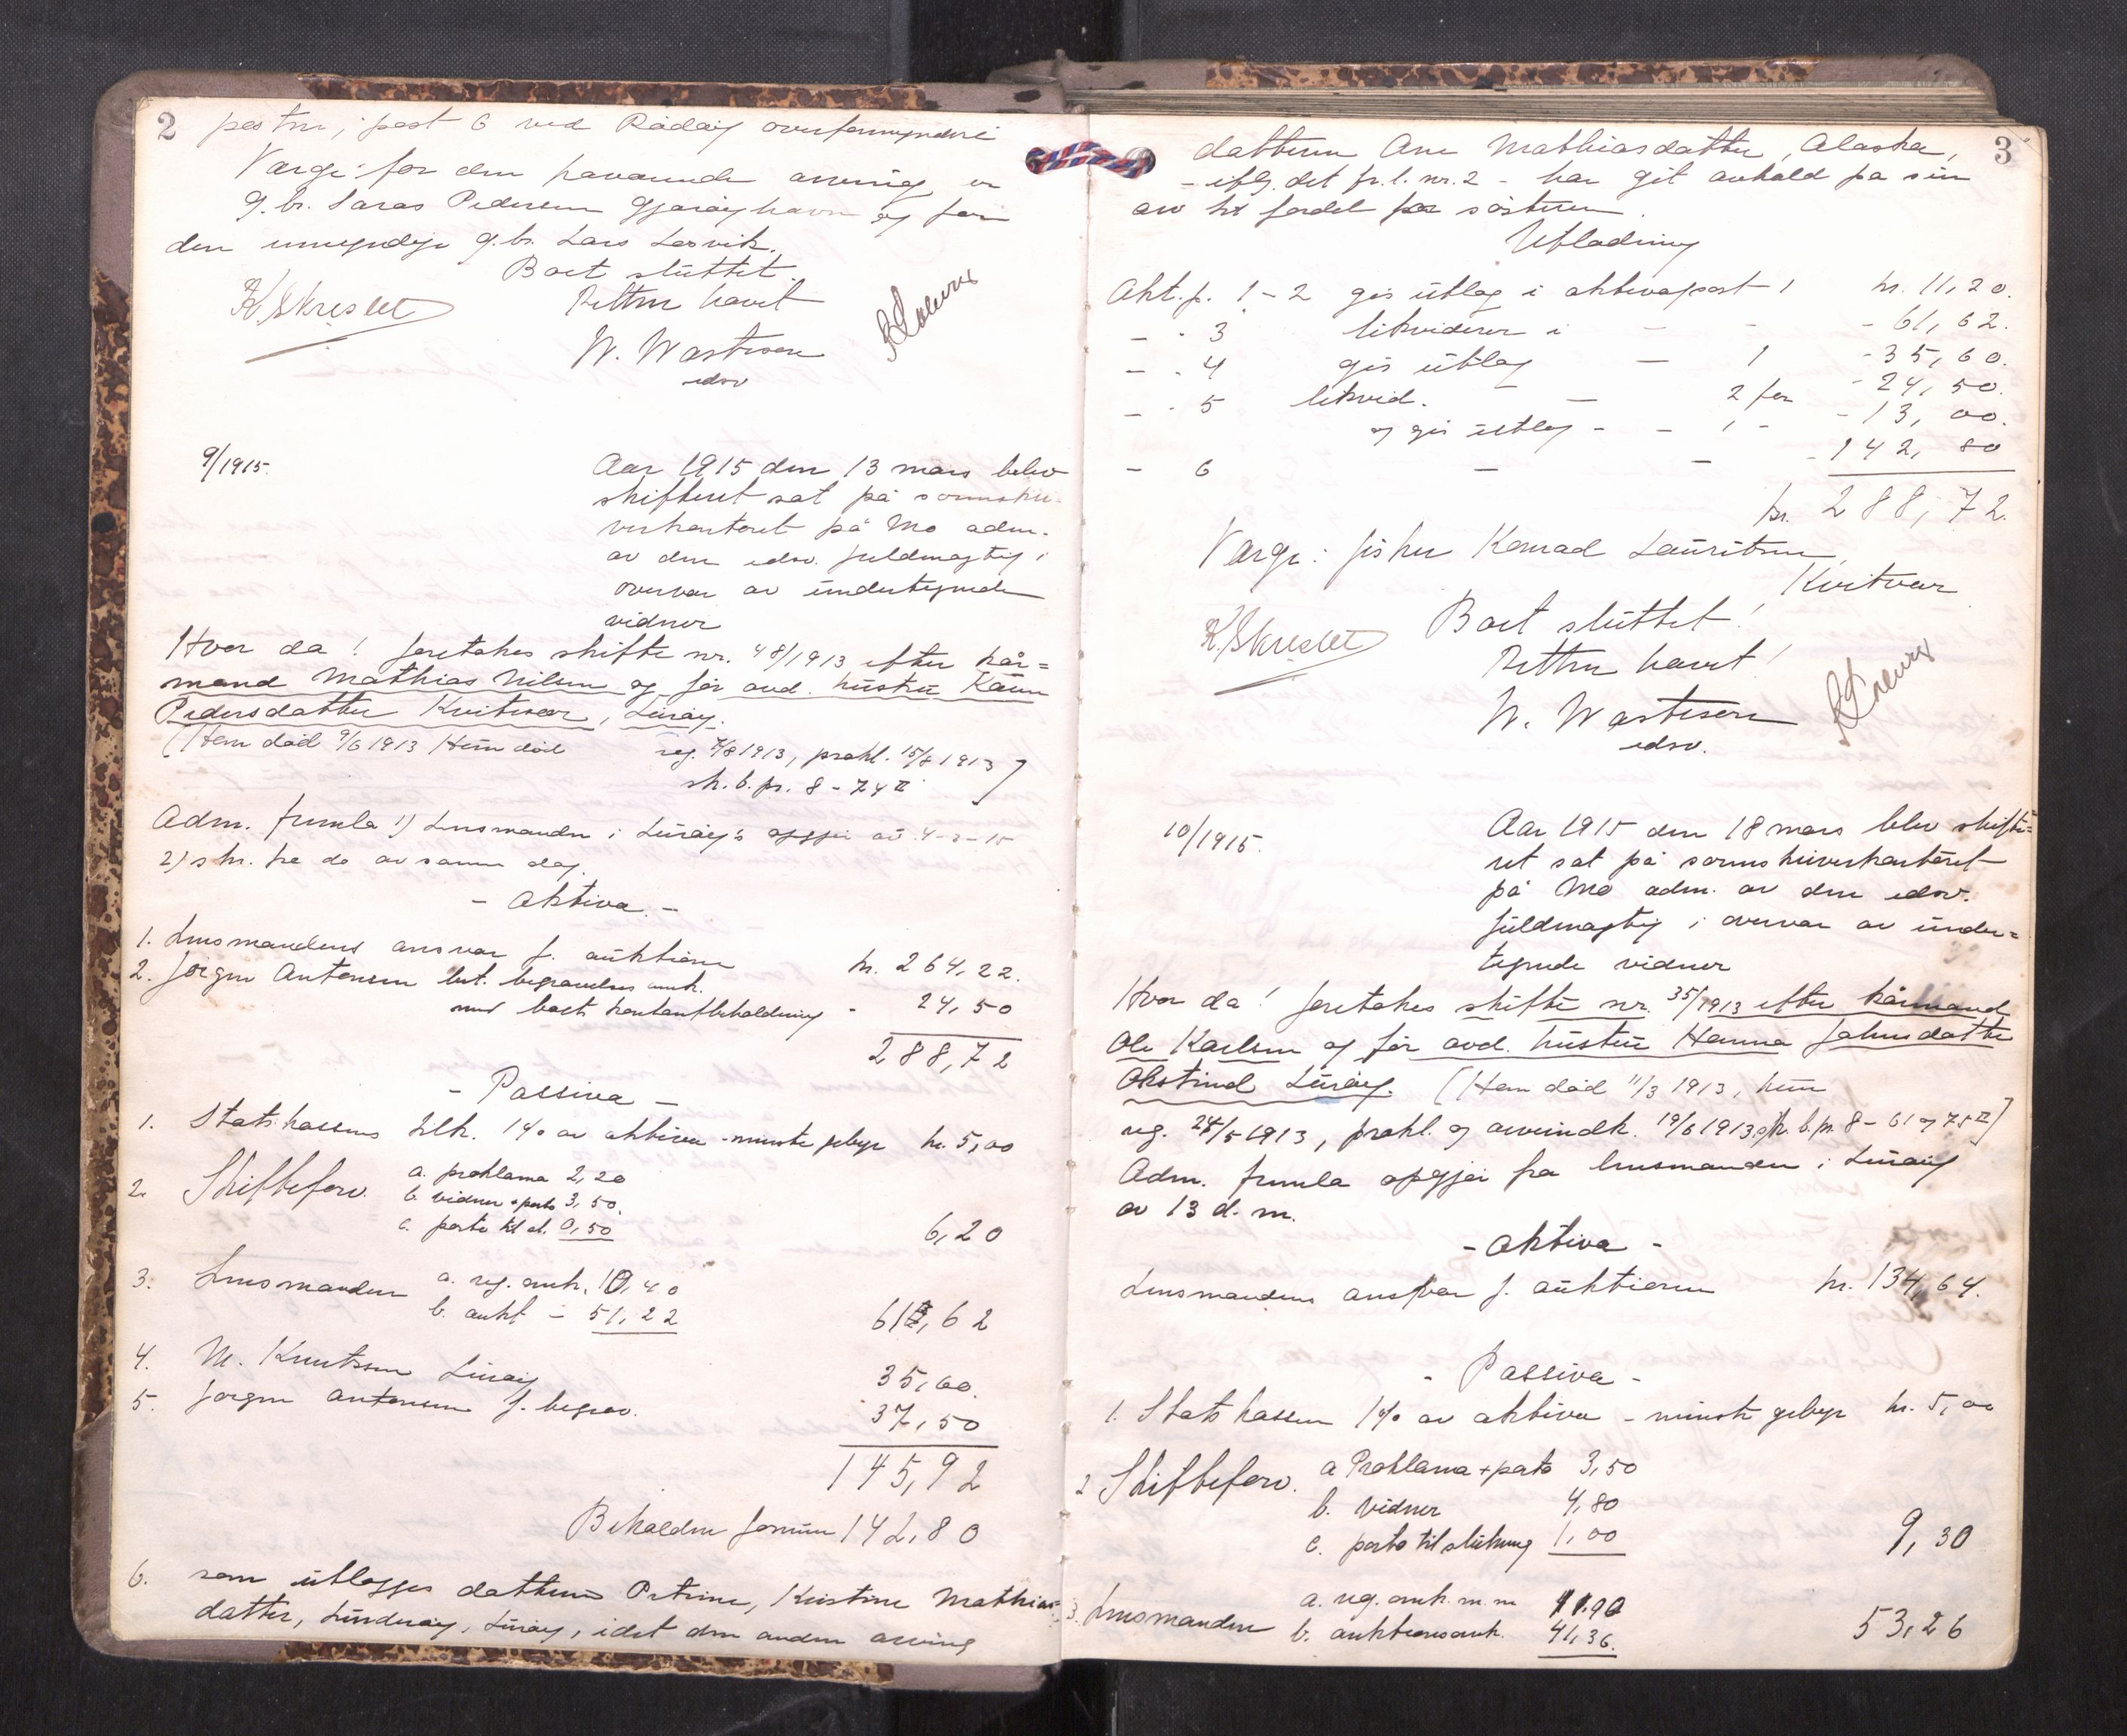 2
postrne, post 6 ved Rødøy overformynderi
Verge for den fraværende arving er
g.br. Laras Pedersen Gjærøyhavn og for
den umyndige g.br. Lars Løsvik.
Boet sluttet.
K. Skreslet
Retten hævet
W. Wartesen
edsv
9/1915.
Aar 1915 den 13 mars blev
skifteret sat på sorenskri-
verkontoret på Mo adm.
av den edsv. fuldmægtig i
overvær av undertegnede
vidner
Hvor da! foretokes skifte nr. 48/1913 efter kår=
mand Mathias Nilsen og før avd. hustru Karen
Pedersdatter Kvitvær, Lurøy.
(Ham død 9/6 1913 Hun død
reg. 7/8 1913, prokl. 15/8 1913
sk. b. pr. 8 - 74 II ]
Adm. fremla 1) Lensmanden i Lurøy's opgjør av 4-3-15
2) skr. fra do av samme dag.
- Aktiva. -
1. Lensmandens ansvar f. auktionen kr. 264,22.
2. Jørgen Antonsen bet. begravelses omk.
med boets kontantbeholdning - 24,50
288,72
- Passiva -
1. Statskassens tilk. 1% av aktiva - minste gebyr kr. 5,00
2. Skifteforv. a. proklama 2,20
b. vidner + porto 3,50.
c. porto til sl. 0,50
6,20
3. Lensmanden a. reg. omk. 10,40
b. aukt - 51,22
61,62
4. M. Knutssen Lurøy 35,60.
5. Jørgen Antonsen f. begrav. 37,50
145,92
Beholden formue 142,80
6. som utlægges datteren Petrine, Kristine Mathias-
datter, Sundøy, Lurøy, idet den anden arving
3
datteren Ane Mathiasdatter, Alaska,
- iflg. det fr.l. nr. 2 - har git avkald på sin
arv til fordel for søsteren.
Utlodning
Akt. p. 1 - 2 gis utlæg i aktivapost 1 kr. 11,20.
- - 3 likviderer i - - - 61,62.
- - 4 gis utlæg - 1 - 35,60.
- - 5 likvid. - 2 for - 24,50.
og gis utlæg - - 1 - - 13,00.
- 6 - - - 142,80
kr. 288,72.
Verge: fisker Konrad Lauritsen,
Kvitvær
Boet sluttet!
K. Skreslet
Retten hævet!
W. Wartesen
edsv.
10/1915.
Aar 1915 den 18 mars blev skifte=
ret sat på sorenskriverkontoret
på Mo adm. av den edsv.
fuldmægtig i overvær av under=
tegnede vidner
Hvor da! foretokes skifte nr. 35/1913 efter kårmand
Ole Karlsen og før avd. hustru Hanna Johnsdatter
Okstind Lurøy. (Ham død 11/3 1913, hun
reg. 24/5 1913, prokl. og arveindk. 19/6 1913, sk. b. pr. 8 - 61 og 75 II]
Adm. fremla opgjør fra lensmanden i Lurøy
av 13 d. m.
- Aktiva -
Lensmandens ansvar f. auktionen kr. 134,64.
- Passiva -
1. Statskassen 1% av aktiva - minste gebyr kr. 5,00
2 Skifteforv. a Proklama + porto 3,50
b. vidner 4,80
c. porto til slutning 1,00
9,30
3. Lensmanden a. reg. omk. m. m 11,90
b. auktionsomk. 41,36.
53,26